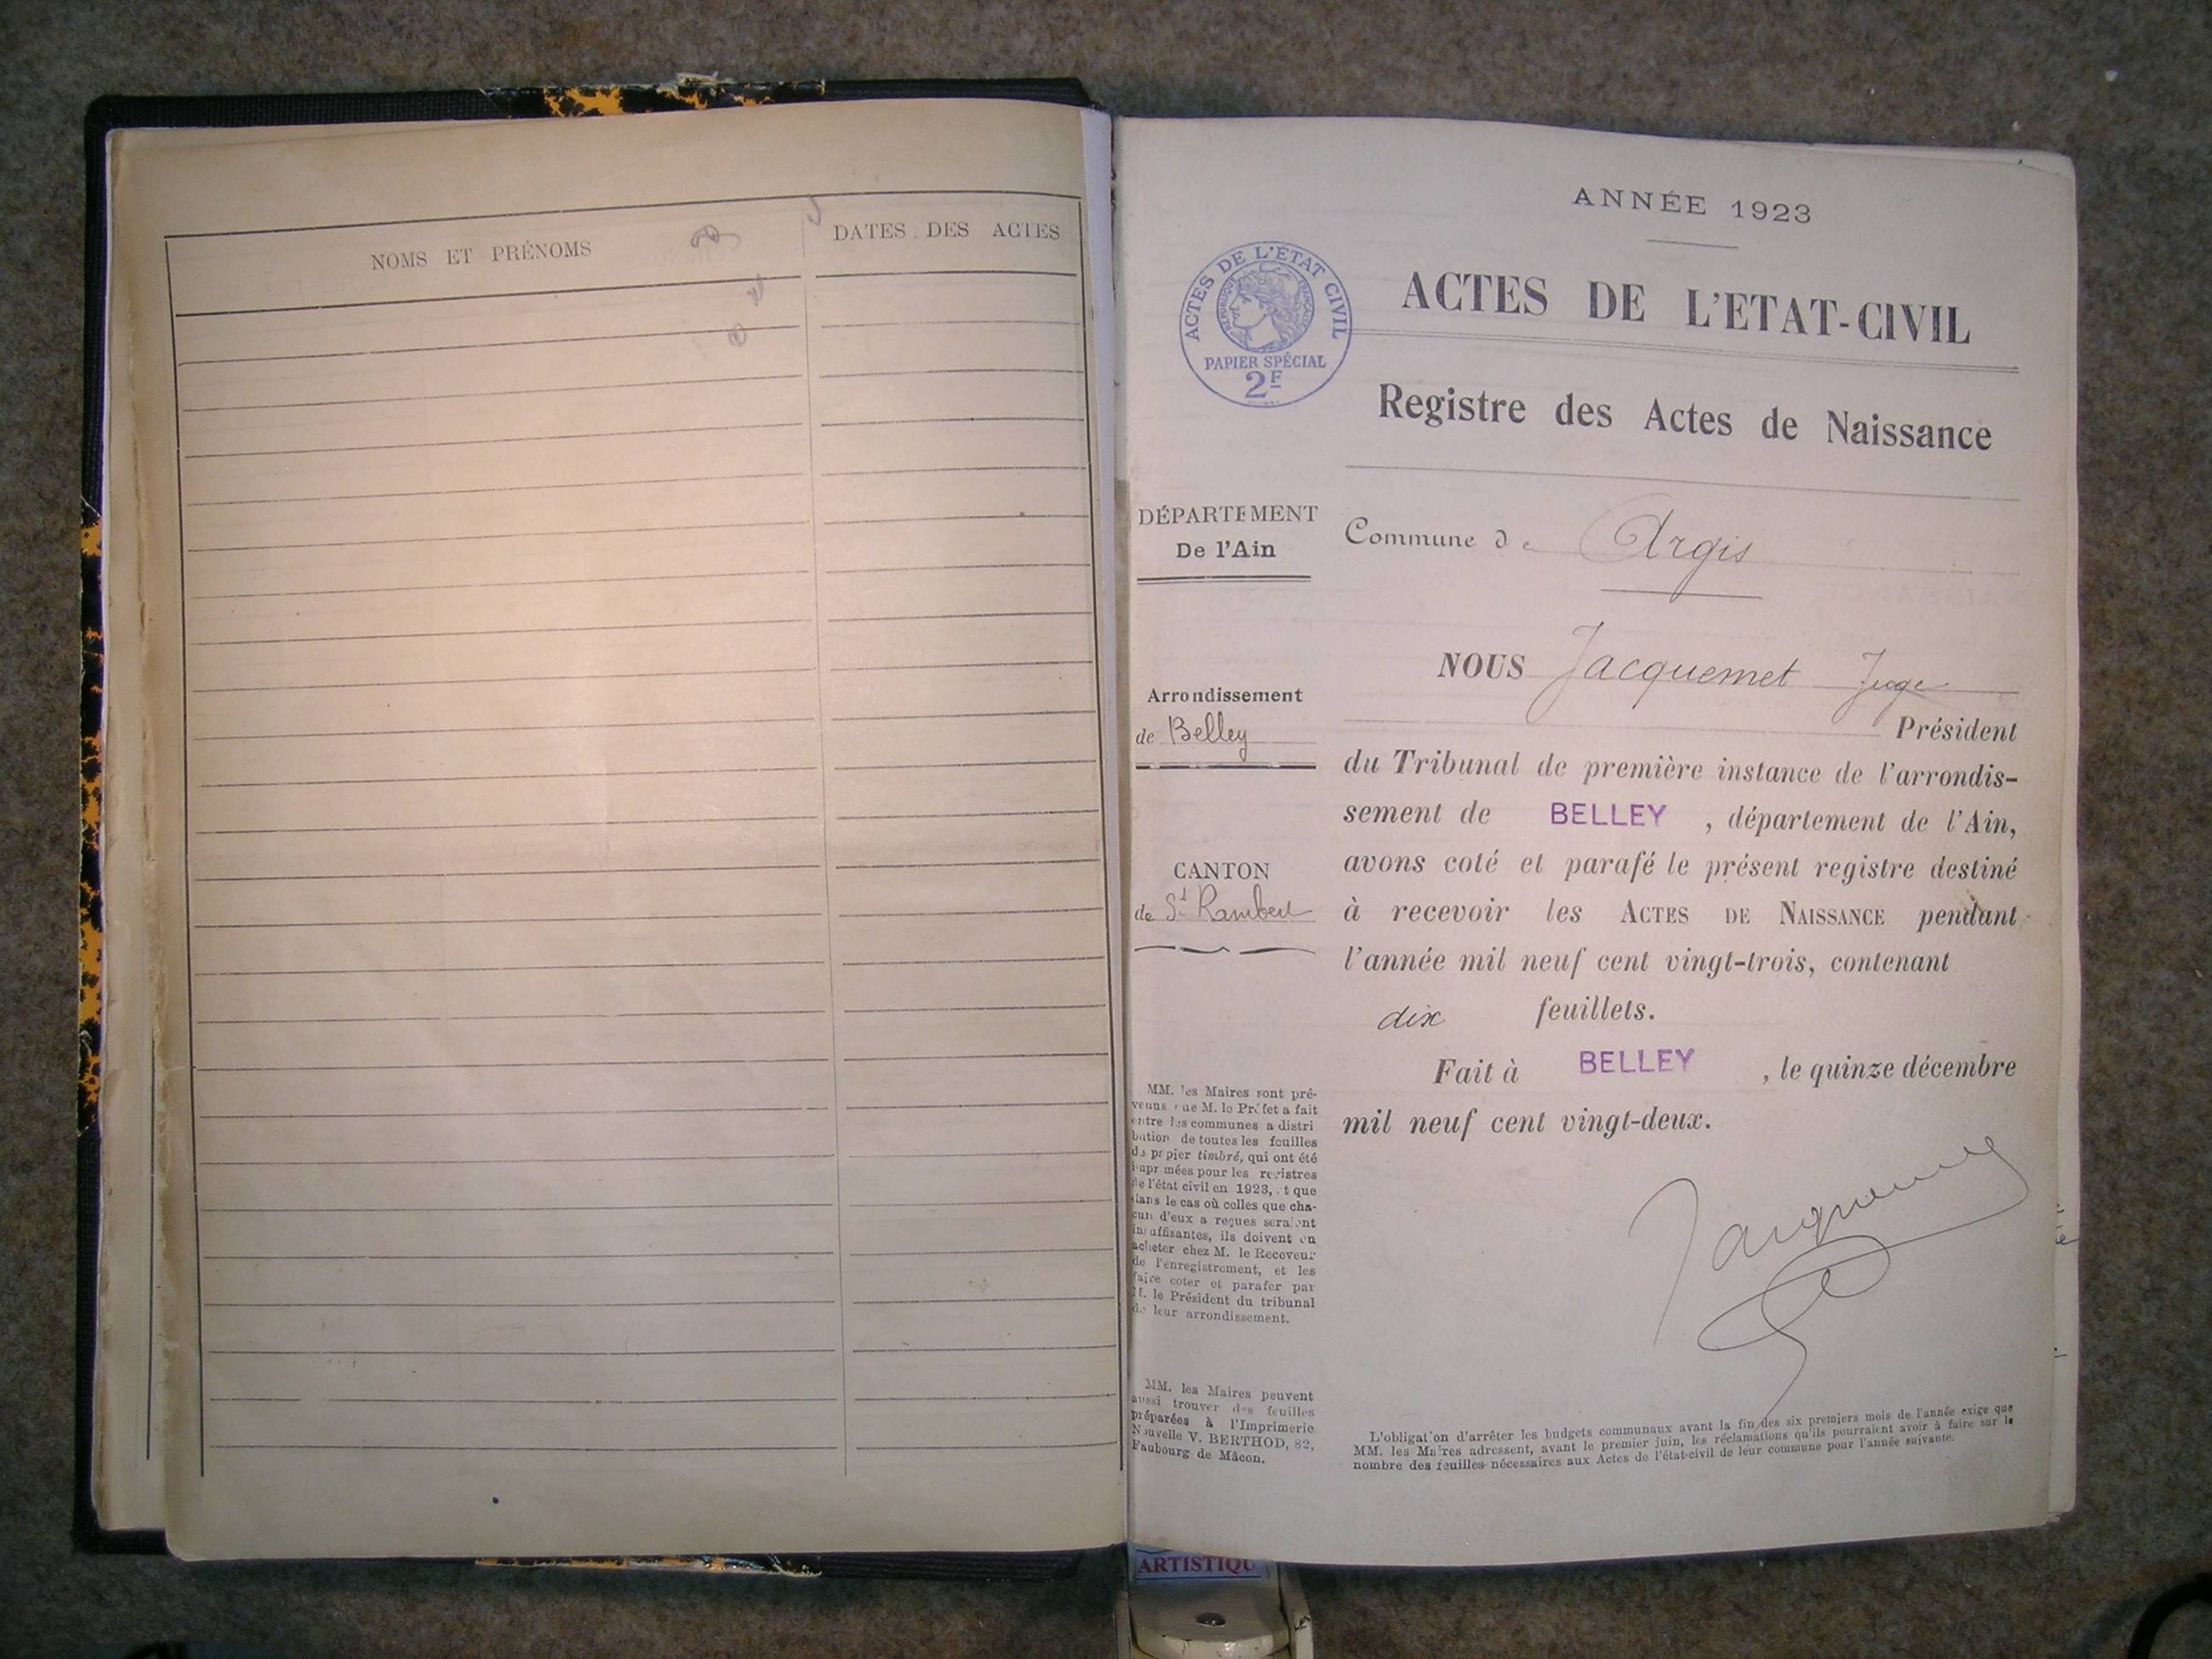 NOMS ET PRÉNOMS
DATES DES ACTES
ANNÉE 1923
ACTES DE L'ÉTAT CIVIL
RÉPUBLIQUE FRANÇAISE
PAPIER SPÉCIAL
2F
ACTES DE L'ETAT-CIVIL
Registre des Actes de Naissance
DÉPARTEMENT
De l'Ain
Arrondissement
de Belley
CANTON
de St Rambert
MM. les Maires sont pré-
venus que M. le Préfet a fait
entre les communes a distri
bution de toutes les feuilles
de papier timbré, qui ont été
imprimées pour les registres
de l'état civil en 1923, et que
dans le cas où celles que cha-
cun d'eux a reçues seraient
insuffisantes, ils doivent en
acheter chez M. le Receveur
de l'enregistrement, et les
faire coter et parafer par
M. le Président du tribunal
de leur arrondissement.
MM. les Maires peuvent
aussi trouver des feuilles
préparées à l'Imprimerie
Nouvelle V. BERTHOD, 82,
Faubourg de Mâcon.
Commune de Argis
NOUS Jacquemet Juge
Président
du Tribunal de première instance de l'arrondis-
sement de BELLEY, département de l'Ain,
avons coté et parafé le présent registre destiné
à recevoir les ACTES DE NAISSANCE pendant
l'année mil neuf cent vingt-trois, contenant
dix feuillets.
Fait à BELLEY, le quinze décembre
mil neuf cent vingt-deux.
L'obligation d'arrêter les budgets communaux avant la fin des six premiers mois de l'année exige que
MM. les Maires adressent, avant le premier juin, les réclamations qu'ils pourraient avoir à faire sur le
nombre des feuilles nécessaires aux Actes de l'état-civil de leur commune pour l'année suivante.
ARTISTIQU